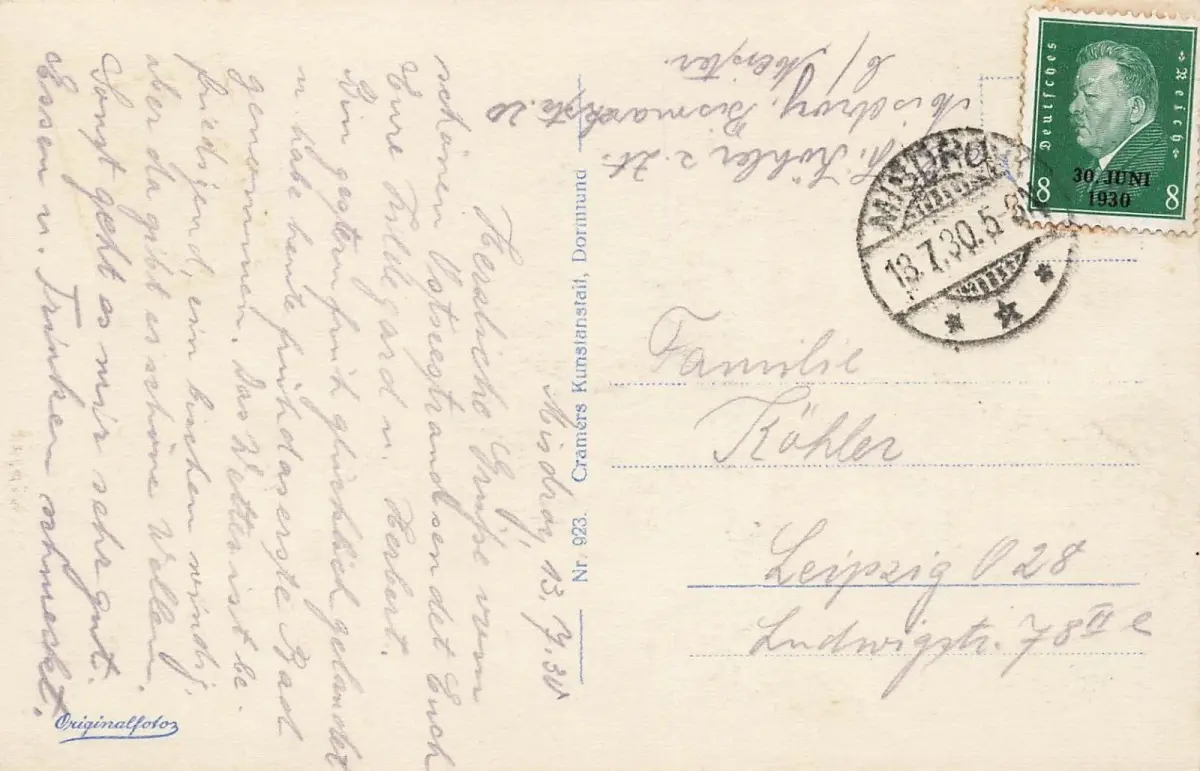 Misdroy, 13. 7. 30
Herzliche Grüße vom
schönen Ostseestrand sendet Euch
Eure Hildegard u. Herbert.
Bin gestern früh glücklich gelandet
u. habe heute früh das erste Bad
genommen. Das Wetter ist be-
friedigend, ein bischen windig,
aber da gibt es schöne Wellen.
Sonst geht es mir sehr gut.
Essen u. Trinken schmeckt.
Originalfotos
Nr. 923. Cramers Kunstanstalt, Dortmund
Köhler z. Zt.
Misdroy, Bismarckstr. 20
b/
Deutsches Reich
30. JUNI
1930
8 8
MISDROY
13.7.30.5-8
Familie
Köhler
Leipzig O 28
Ludwigstr. 78 II